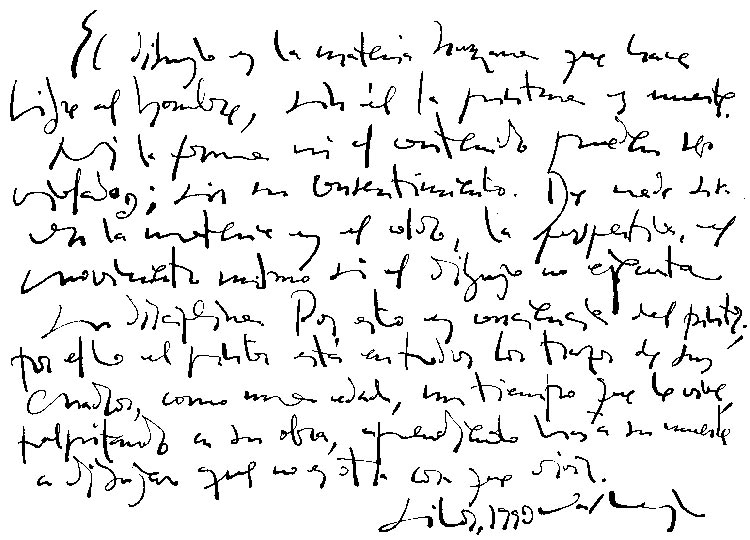 El dibujo es la materia humana que hace
libre al hombre, sin él la pintura es muerte.
Ni la forma ni el contenido pueden ser
violados; sin su consentimiento. De nada sir
ven la materia, el color, la perspectiva, el
movimiento mismo si el dibujo no ejecuta
su disciplina. Por esto es conciencia del pintor,
por ello el pintor está en todos los trazos de sus
cuadros, como una edad, un tiempo que le vive,
palpitando en su obra, aprendiendo hasta su muerte
a dibujar que no es otra cosa que vivir.
1990